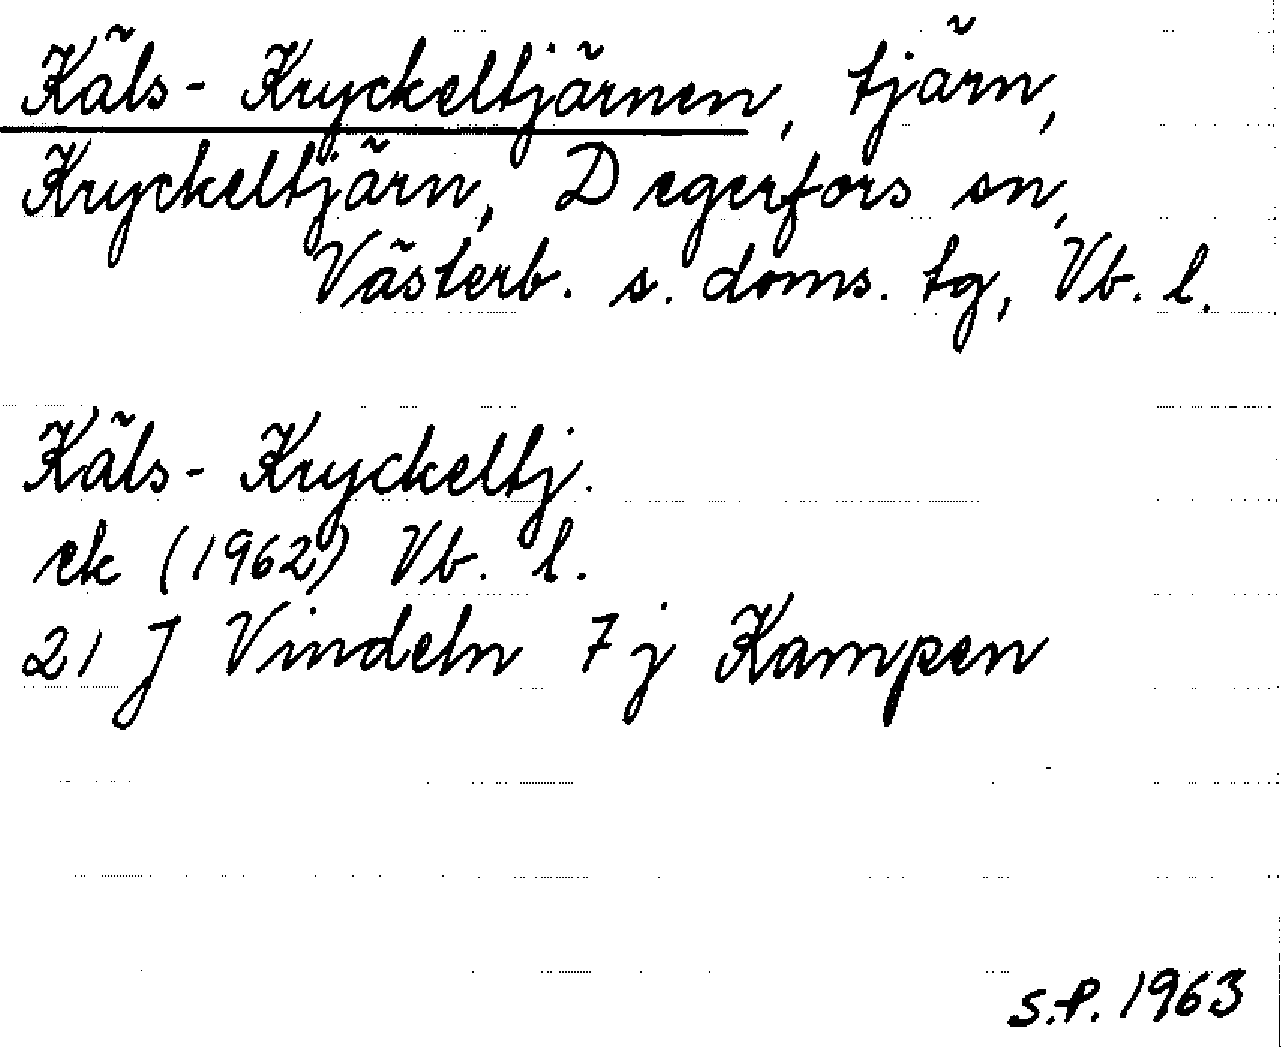 Käls-Kryckeltjärnen, tjärn,
Kryckeltjärn, Degerfors sn,
Västerb. s. doms. tg, Vb. l.
Käls-Kryckeltj.
ek (1962) Vb. l.
21 J Vindeln 7j Kampen
S.P. 1963